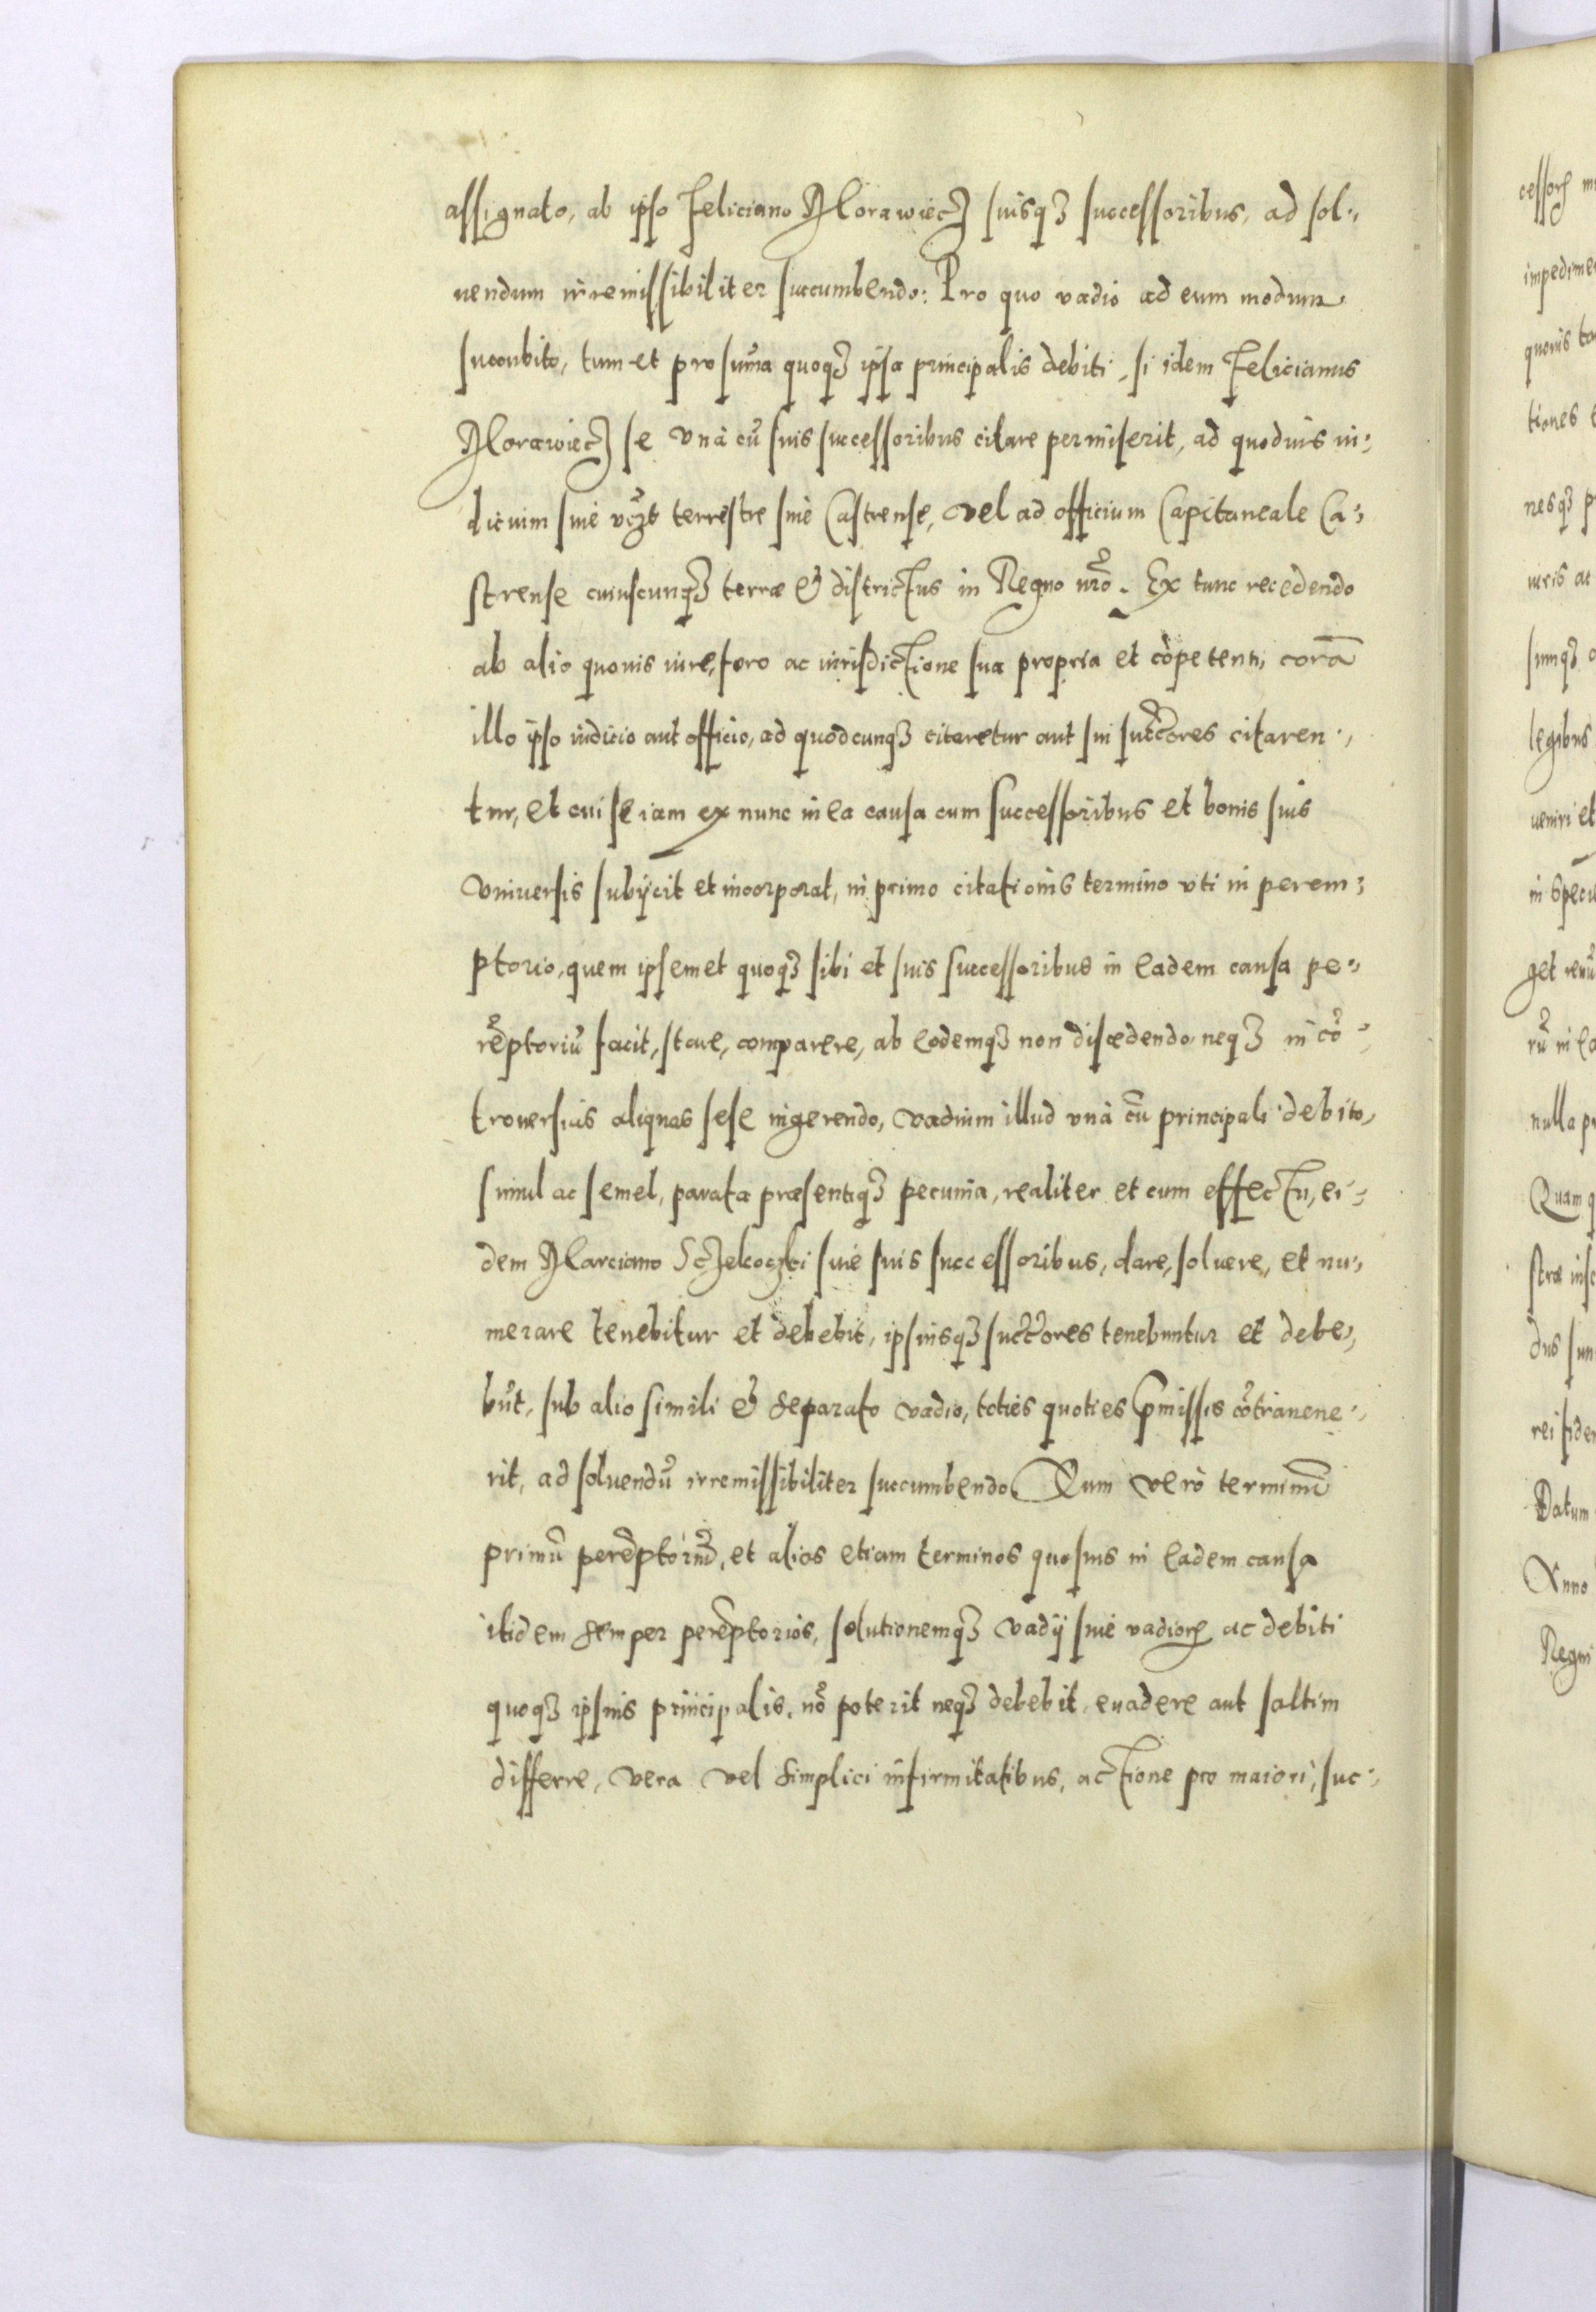 assignato, ab ipso Feliciano Morawiecz suisq3 successoribus, ad sol⸗
uendum irremissibiliter succumbendo: Pro quo vadio ad eum modum
succubito, tum et pro sum̃a quoq3 ipsa principalis debiti, si idem Felicianus
Morawiecz se vnà cũ suis successoribus citare permiserit, ad quoduis iu⸗
dicium siue terrestre siue Castrense, vel ad officium Capitaneale Ca⸗
strense cuiuscunq3 terræ & districtus in Regno nr̃o. Ex tunc recedendo
ab alio quouis iure, foro ac iurisdictione sua propria et cõpetenti, corã
illo ipso iudicio aut officio, ad quodcunq3 citaretur aut sui succ̃ores citaren⸗
tur, et cui se iam ex nunc in ea causa cum successoribus et bonis suis
vniuersis subijcit et incorporat, in primo citationis termino vti in perem⸗
ptorio, quem ipsemet quoq3 sibi et suis successoribus in eadem causa pe⸗
rẽptoriũ facit, stare, comparere, ab eodemq3 non discedendo neq3 in cõ⸗
trouersias aliquas sese ingerendo, vadium illud vnà cũ principali debito,
simul ac semel, parata præsentiq3 pecunia, realiter et cum effectu, ei⸗
dem Marciano Sczekoczki siue suis successoribus, dare, soluere, et nu⸗
merare tenebitur et debebit, ipsiusq3 succ̃ores tenebuntur et debe⸗
bũt, sub alio simili & separato vadio, toties quoties p̃missis cõtrauene⸗
rit, ad soluendũ irremissibiliter succumbendo. Quum verò terminũ
primũ perẽptoriũ, et alios etiam terminos quosuis in eadem causa
itidem semper perẽptorios, solutionemq3 vadij siue vadiorꝝ ac debiti
quoq3 ipsius principalis, nõ poterit neq3 debebit, euadere aut saltim
differre, vera vel simplici infirmitatibus, actione pro maiori, suc⸗